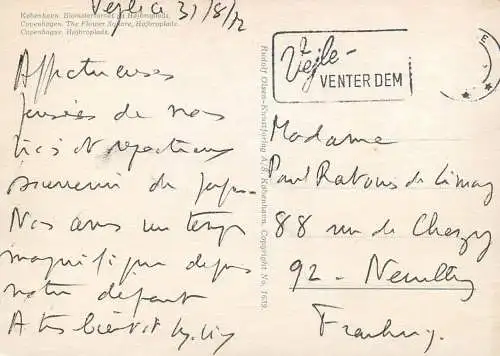 Vejle le 31/8/72
København. Blomstertorvet på Højbroplads.
Copenhagen. The Flower Square, Højbroplads.
Copenhague. Højbroplads.
Affectueuses
pensées de nos
souvenir de
Nos avons un temps
magnifique depuis
notre départ
A très bientôt
Rudolf Olsen-Kunstforlag A/S. København. Copyright No. 1639
Vejle-
VENTER DEM
Madame
Paul Ratouis de Limay
88 rue de Chézy
92 - Neuilly